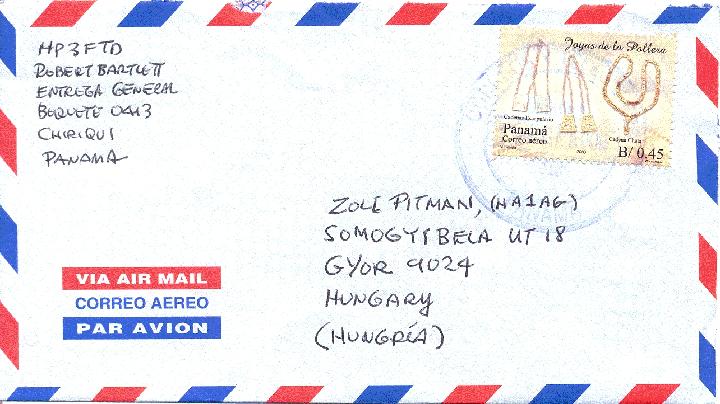 HP3FTD
ROBERT BARTLETT
ENTREGA GENERAL
BOQUETE 0413
CHIRIQUI
PANAMA
Joyas de la Pollera
Cadena Chata
Panamá
Correo aéreo
B/ 0.45
ZOLI PITMAN, (HA1AG)
SOMOGYI BELA UT 18
GYOR 9024
HUNGARY
(HUNGRÍA)
VIA AIR MAIL
CORREO AEREO
PAR AVION